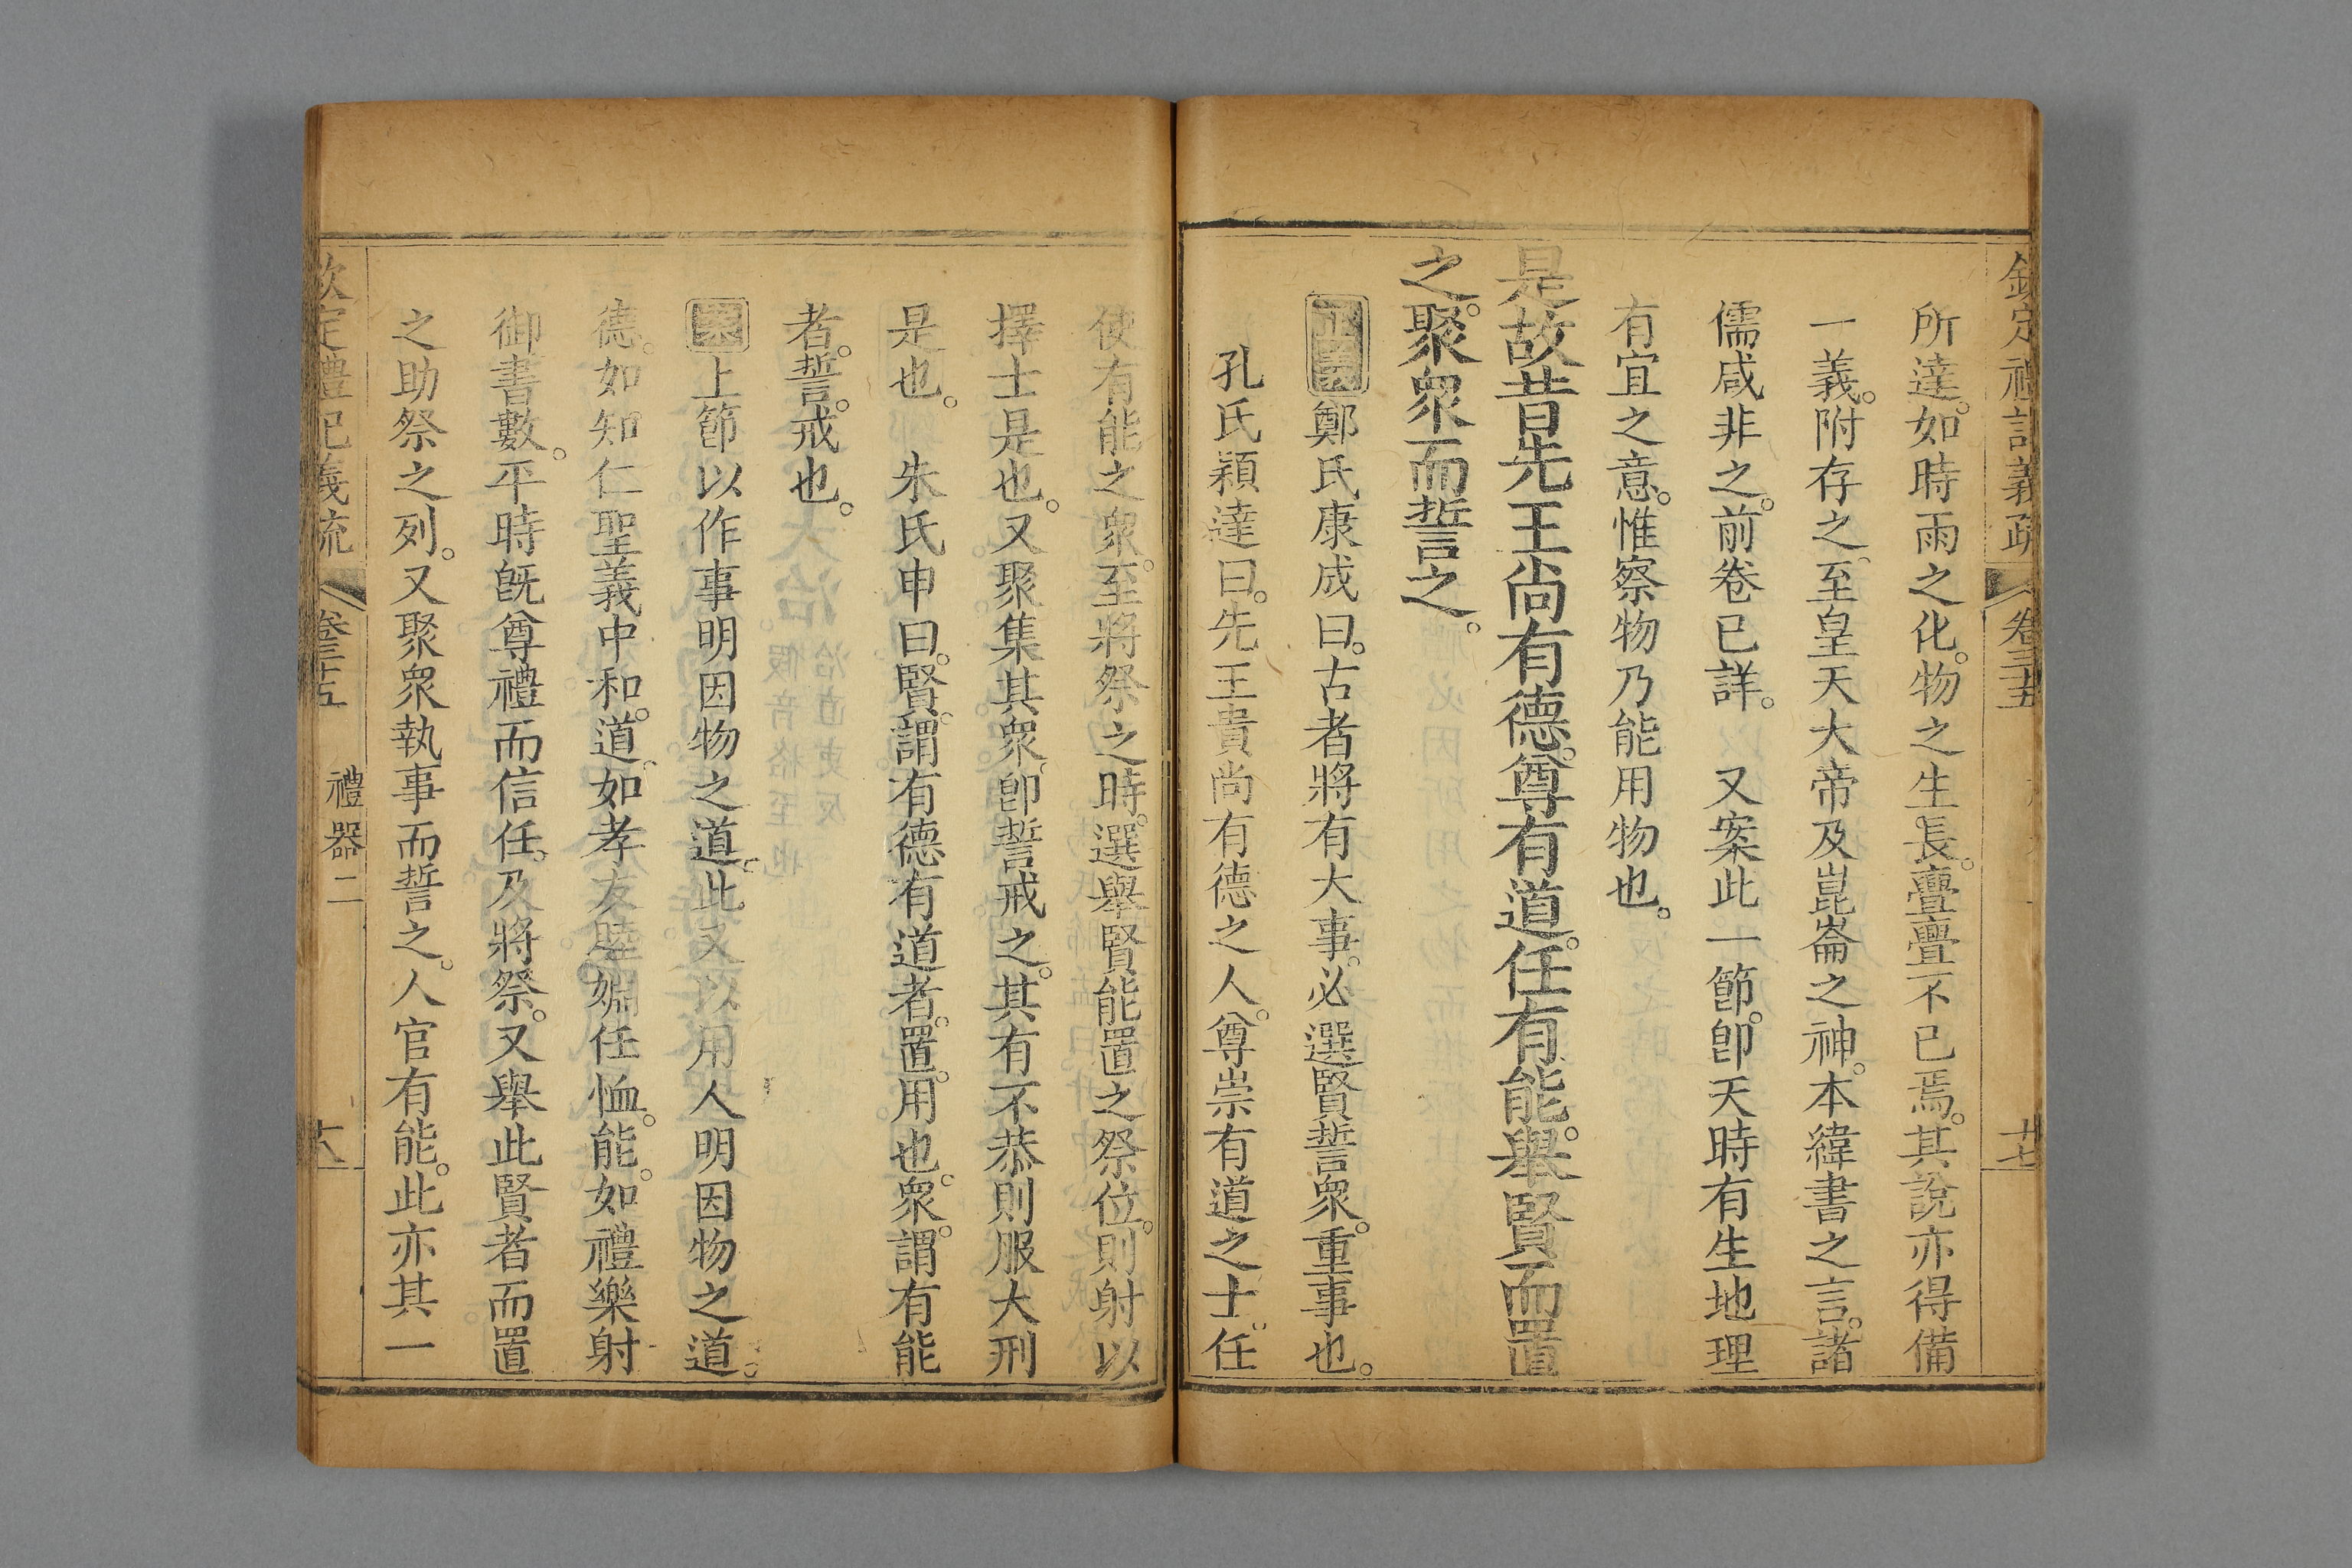 欽定禮記義疏 卷三十五 十七
所達。如時雨之化。物之生長。亹亹不已焉。其說亦得備
一義。附存之。至皇天大帝及崑崙之神。本緯書之言。諸
儒咸非之。前卷已詳。 又案此一節。卽天時有生地理
有宜之意。惟察物乃能用物也。
是故昔先王尚有德。尊有道。任有能。舉賢而置
之。聚衆而誓之。
正義 鄭氏康成曰。古者將有大事。必選賢誓衆。重事也。
孔氏穎達曰。先王貴尚有德之人。尊崇有道之士。任
使有能之衆。至將祭之時。選舉賢能置之祭位。則射以
擇士是也。又聚集其衆。卽誓戒之。其有不恭則服大刑
是也。 朱氏申曰。賢。謂有德有道者。置。用也。衆。謂有能
者。誓。戒也。
案 上節以作事明因物之道。此又以用人明因物之道。
德。如知仁聖義中和。道。如孝友睦婣任恤。能。如禮樂射
御書數。平時旣尊禮而信任。及將祭。又舉此賢者而置
之助祭之列。又聚衆執事而誓之。人官有能。此亦其一
欽定禮記義疏 卷三十五 禮器二 六